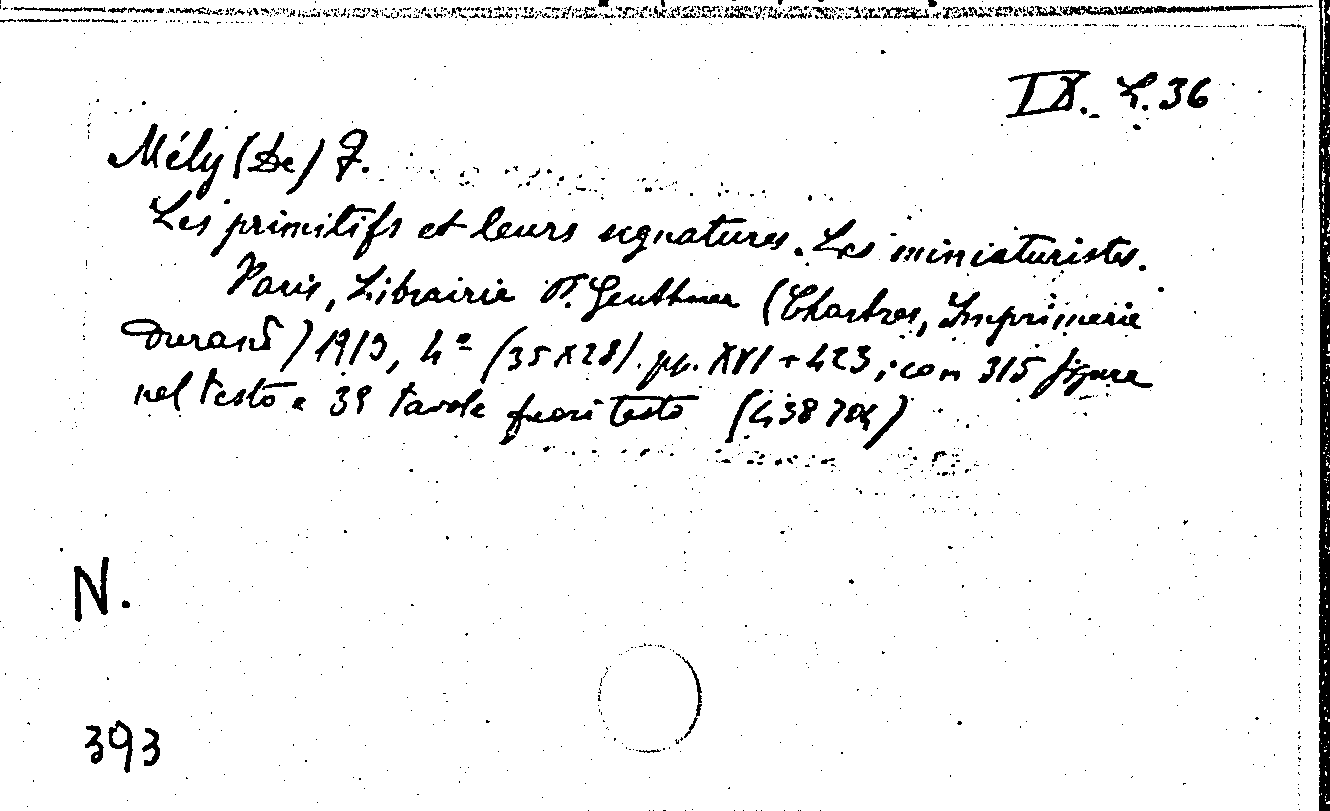 IX. L. 36
Mély (De) F.
Les primitifs et leurs signatures. Les miniaturistes.
Paris, Librairie P. Geuthner (Chartres, Imprimerie
Durand) 1913, 4º (35x28). pp. XVI + 423, con 315 figure
nel testo e 39 tavole fuori testo (438704)
N.
393